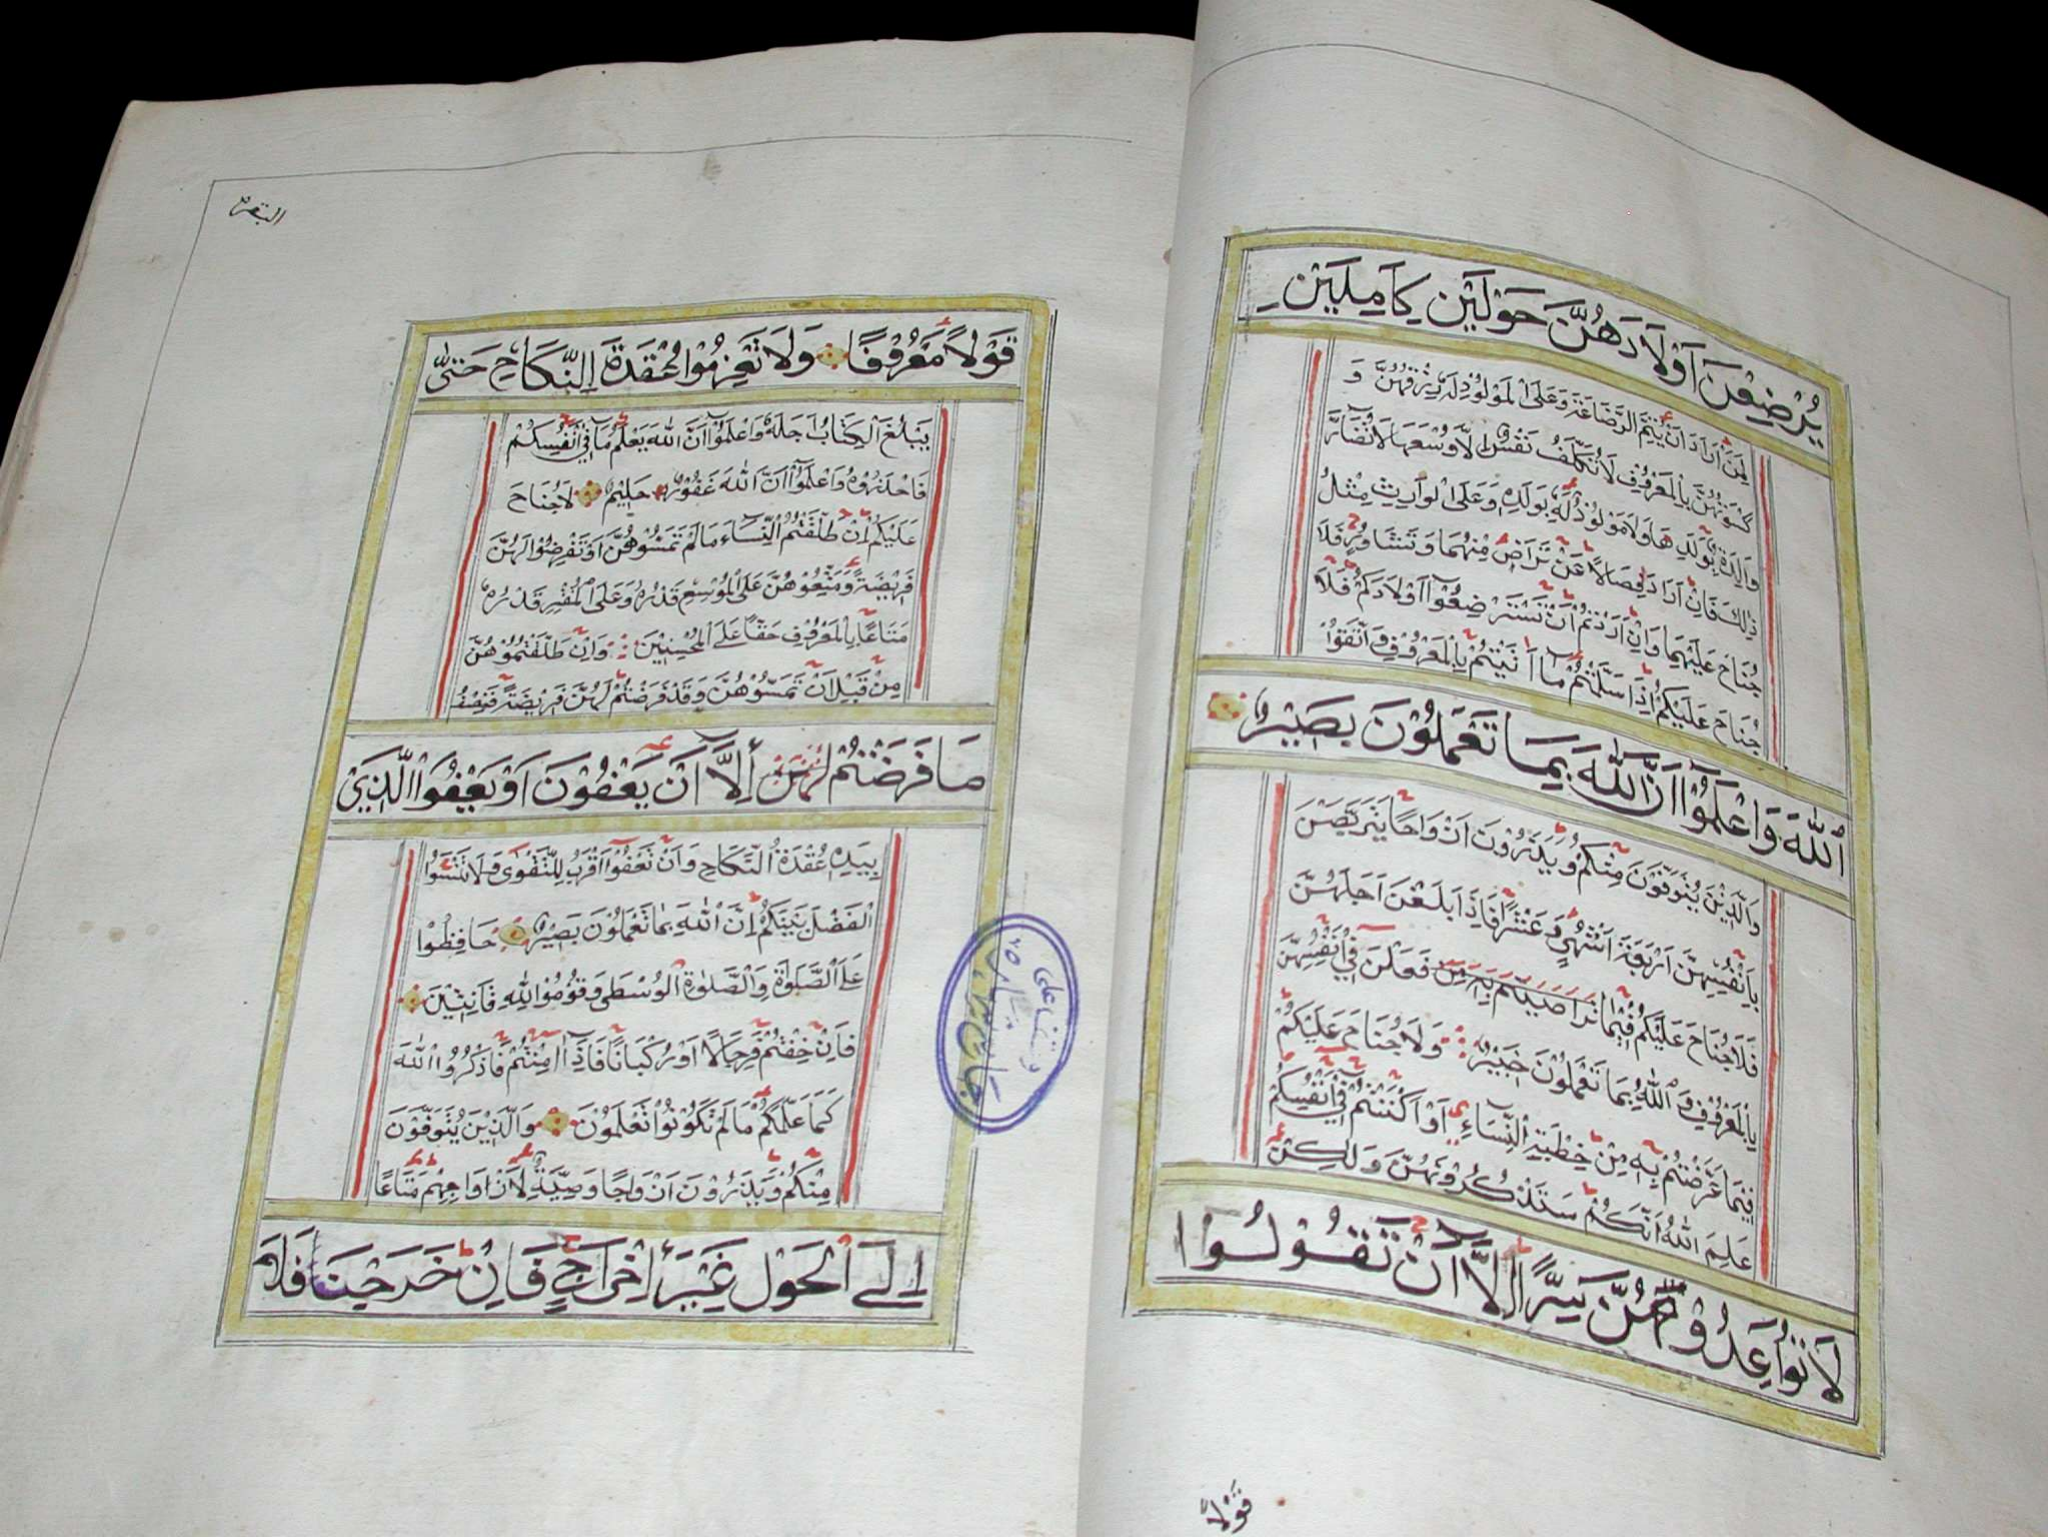 يُرْضِعْنَ اَوْلَادَهُنَّ حَوْلَيْنِ كَامِلَيْنِ
لِمَنْ اَرَادَ اَنْ يُتِمَّ الرَّضَاعَةَ وَعَلَى الْمَوْلُوْدِ لَهٗ رِزْقُهُنَّ وَ
كِسْوَتُهُنَّ بِالْمَعْرُوْفِ لَا تُكَلَّفُ نَفْسٌ اِلَّا وُسْعَهَا لَا تُضَآرَّ
وَالِدَةٌ بِوَلَدِهَا وَلَا مَوْلُوْدٌ لَهٗ بِوَلَدِهٖ وَعَلَى الْوَارِثِ مِثْلُ
ذٰلِكَ فَاِنْ اَرَادَا فِصَالًا عَنْ تَرَاضٍ مِنْهُمَا وَتَشَاوُرٍ فَلَا
جُنَاحَ عَلَيْهِمَا وَاِنْ اَرَدْتُمْ اَنْ تَسْتَرْضِعُوْٓا اَوْلَادَكُمْ فَلَا
جُنَاحَ عَلَيْكُمْ اِذَا سَلَّمْتُمْ مَآ اٰتَيْتُمْ بِالْمَعْرُوْفِ وَاتَّقُوْا
اللّٰهَ وَاعْلَمُوْٓا اَنَّ اللّٰهَ بِمَا تَعْمَلُوْنَ بَصِيْرٌ
وَالَّذِيْنَ يُتَوَفَّوْنَ مِنْكُمْ وَيَذَرُوْنَ اَزْوَاجًا يَتَرَبَّصْنَ
بِاَنْفُسِهِنَّ اَرْبَعَةَ اَشْهُرٍ وَعَشْرًا فَاِذَا بَلَغْنَ اَجَلَهُنَّ
فَلَا جُنَاحَ عَلَيْكُمْ فِيْمَا فَعَلْنَ فِيْٓ اَنْفُسِهِنَّ
بِالْمَعْرُوْفِ وَ اللّٰهُ بِمَا تَعْمَلُوْنَ خَبِيْرٌ وَلَا جُنَاحَ عَلَيْكُمْ
فِيْمَا عَرَّضْتُمْ بِهٖ مِنْ خِطْبَةِ النِّسَآءِ اَوْ اَكْنَنْتُمْ فِيْٓ اَنْفُسِكُمْ
عَلِمَ اللّٰهُ اَنَّكُمْ سَتَذْكُرُوْنَهُنَّ وَلٰكِنْ
لَا تُوَاعِدُوْهُنَّ سِرًّا اِلَّآ اَنْ تَقُوْلُوْا
قَوْلًا
البقره
قَوْلًا مَعْرُوْفًا وَلَا تَعْزِمُوْا عُقْدَةَ النِّكَاحِ حَتّٰى
يَبْلُغَ الْكِتَابُ اَجَلَهٗ وَاعْلَمُوْٓا اَنَّ اللّٰهَ يَعْلَمُ مَا فِيْٓ اَنْفُسِكُمْ
فَاحْذَرُوْهُ وَاعْلَمُوْٓا اَنَّ اللّٰهَ غَفُوْرٌ حَلِيْمٌ لَا جُنَاحَ
عَلَيْكُمْ اِنْ طَلَّقْتُمُ النِّسَآءَ مَا لَمْ تَمَسُّوْهُنَّ اَوْ تَفْرِضُوْا لَهُنَّ
فَرِيْضَةً وَمَتِّعُوْهُنَّ عَلَى الْمُوْسِعِ قَدَرُهٗ وَعَلَى الْمُقْتِرِ قَدَرُهٗ
مَتَاعًا بِالْمَعْرُوْفِ حَقًّا عَلَى الْمُحْسِنِيْنَ وَاِنْ طَلَّقْتُمُوْهُنَّ
مِنْ قَبْلِ اَنْ تَمَسُّوْهُنَّ وَقَدْ فَرَضْتُمْ لَهُنَّ فَرِيْضَةً فَنِصْفُ
مَا فَرَضْتُمْ اِلَّآ اَنْ يَعْفُوْنَ اَوْ يَعْفُوَا الَّذِيْ
بِيَدِهٖ عُقْدَةُ النِّكَاحِ وَاَنْ تَعْفُوْٓا اَقْرَبُ لِلتَّقْوٰى وَلَا تَنْسَوُا
الْفَضْلَ بَيْنَكُمْ اِنَّ اللّٰهَ بِمَا تَعْمَلُوْنَ بَصِيْرٌ حَافِظُوْا
عَلَى الصَّلَوٰةِ وَالصَّلٰوةِ الْوُسْطٰى وَقُوْمُوْا لِلّٰهِ قَانِتِيْنَ
فَاِنْ خِفْتُمْ فَرِجَالًا اَوْ رُكْبَانًا فَاِذَآ اَمِنْتُمْ فَاذْكُرُوا اللّٰهَ
كَمَا عَلَّمَكُمْ مَا لَمْ تَكُوْنُوْا تَعْلَمُوْنَ وَالَّذِيْنَ يُتَوَفَّوْنَ
مِنْكُمْ وَيَذَرُوْنَ اَزْوَاجًا وَصِيَّةً لِاَزْوَاجِهِمْ مَتَاعًا
اِلَى الْحَوْلِ غَيْرَ اِخْرَاجٍ فَاِنْ خَرَجْنَ فَلَا